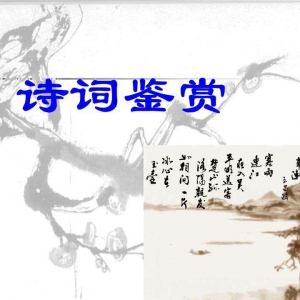 诗词鉴赏
寒雨
連江
夜入吴
平明送客
楚山孤
洛陽親友
如相問一片
冰心在
玉壶